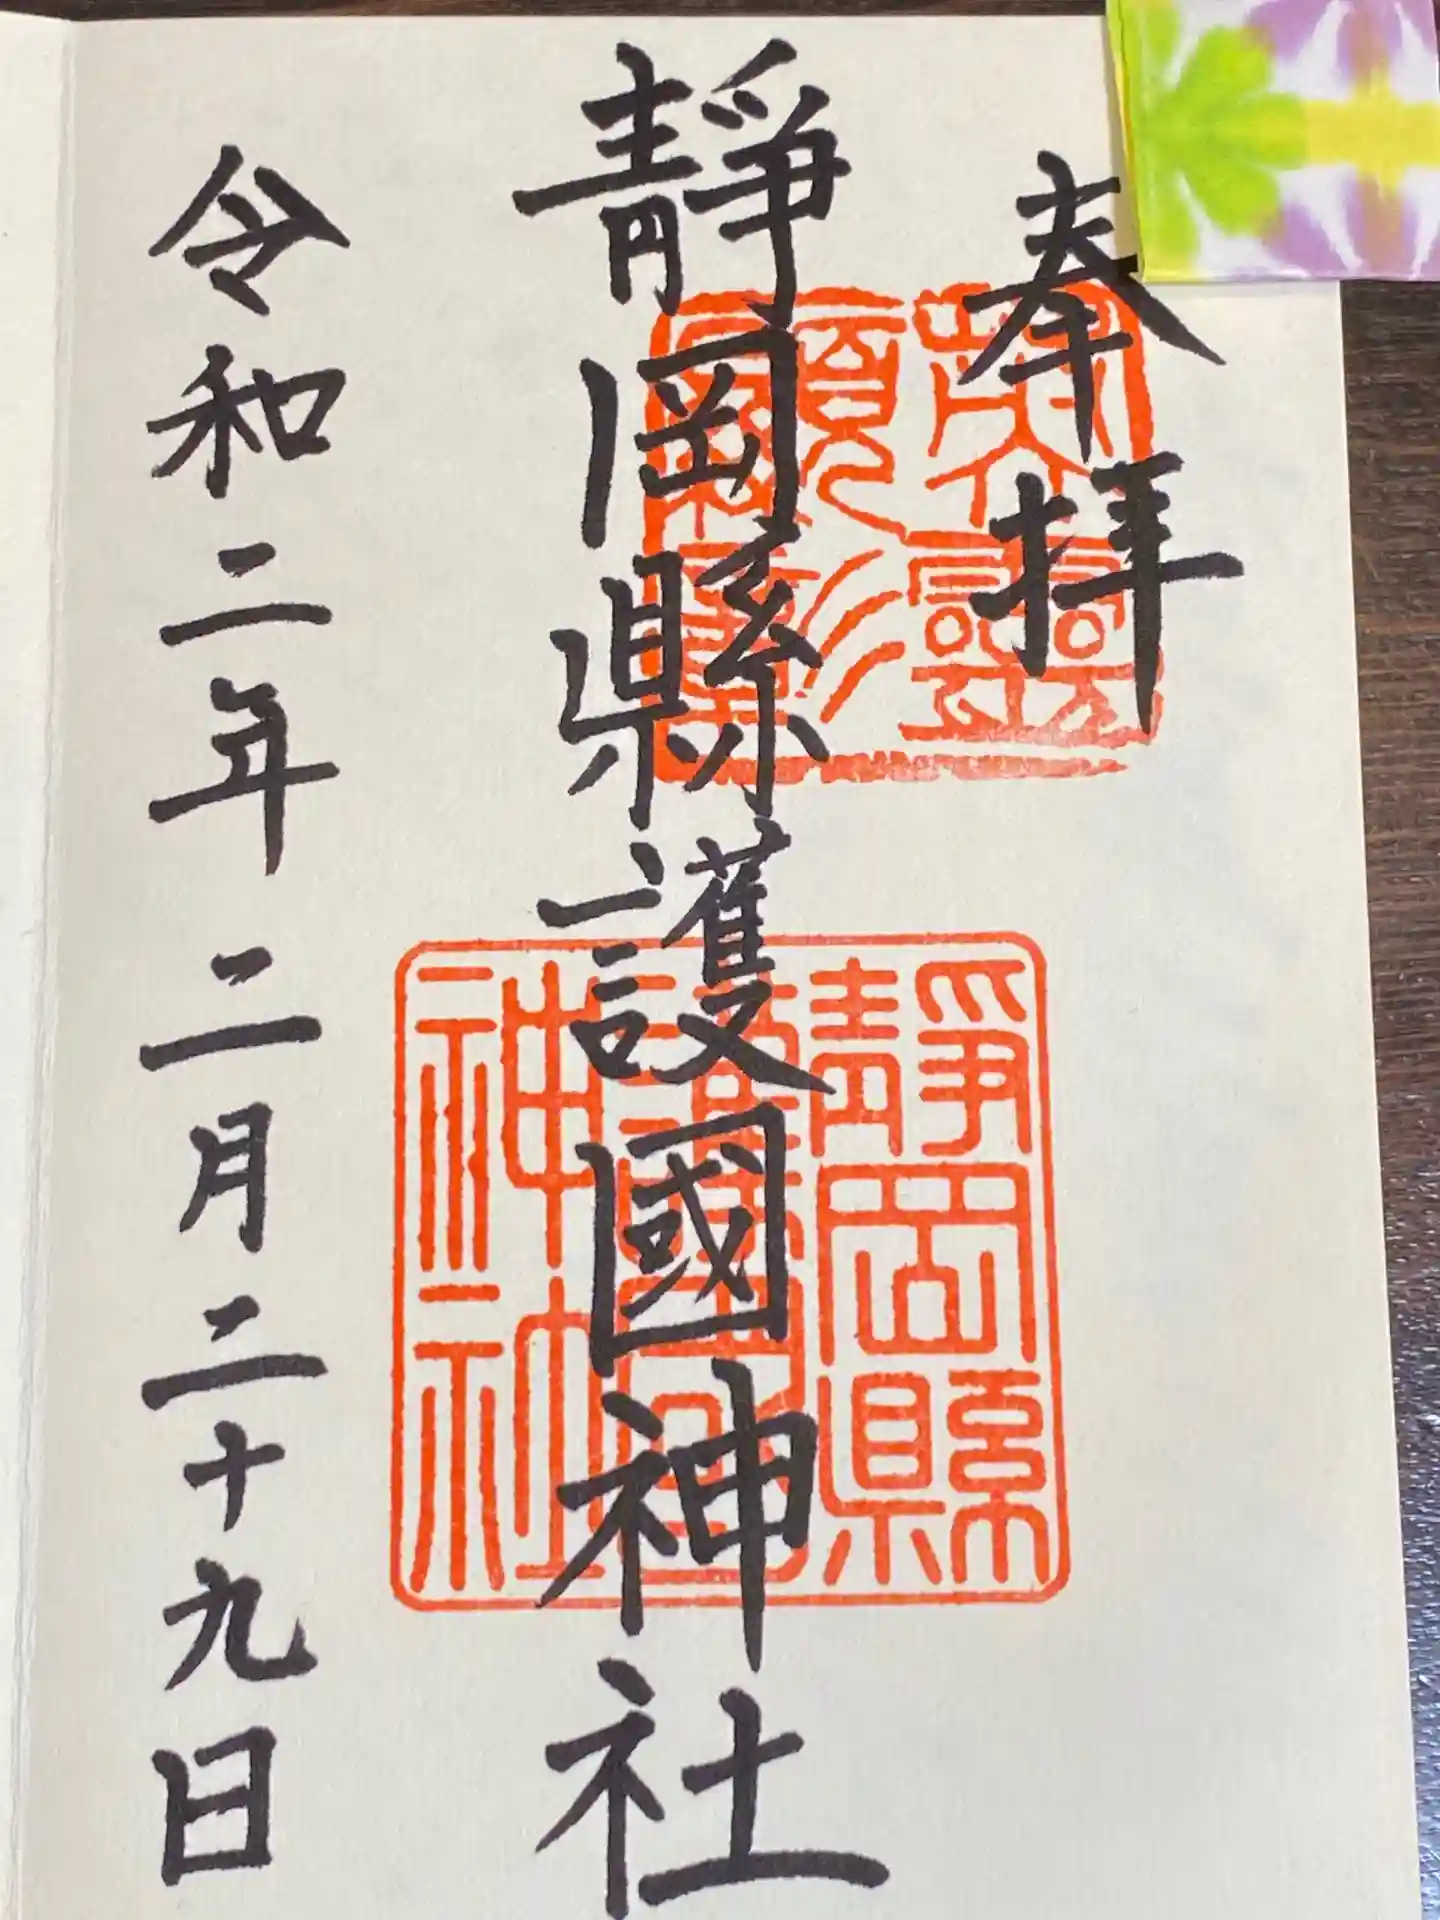 奉拜
英靈顕彰
靜岡縣護國神社
靜岡縣護國神社
令和二年二月二十九日